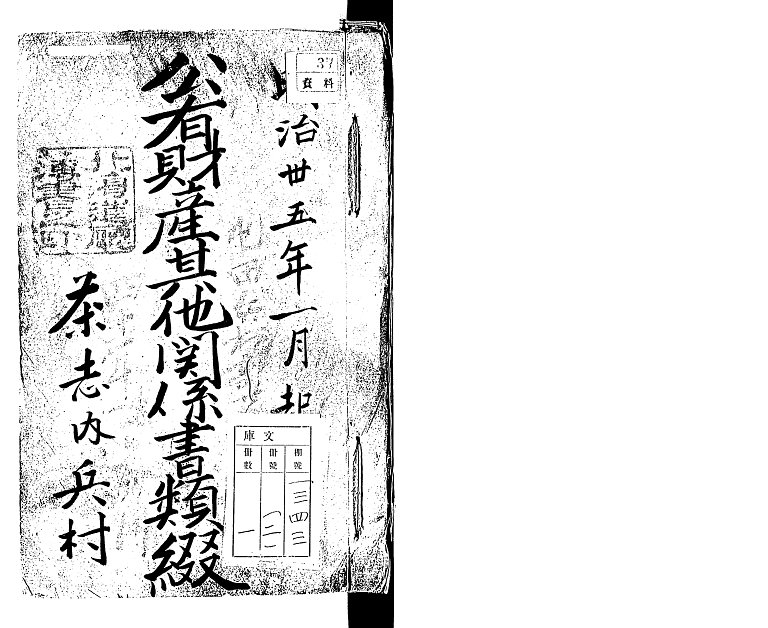 37
資料
治卅五年一月
公有財産其他関係書類綴
茶志内兵村
文庫
棚號
冊號
冊數
一三四三
一